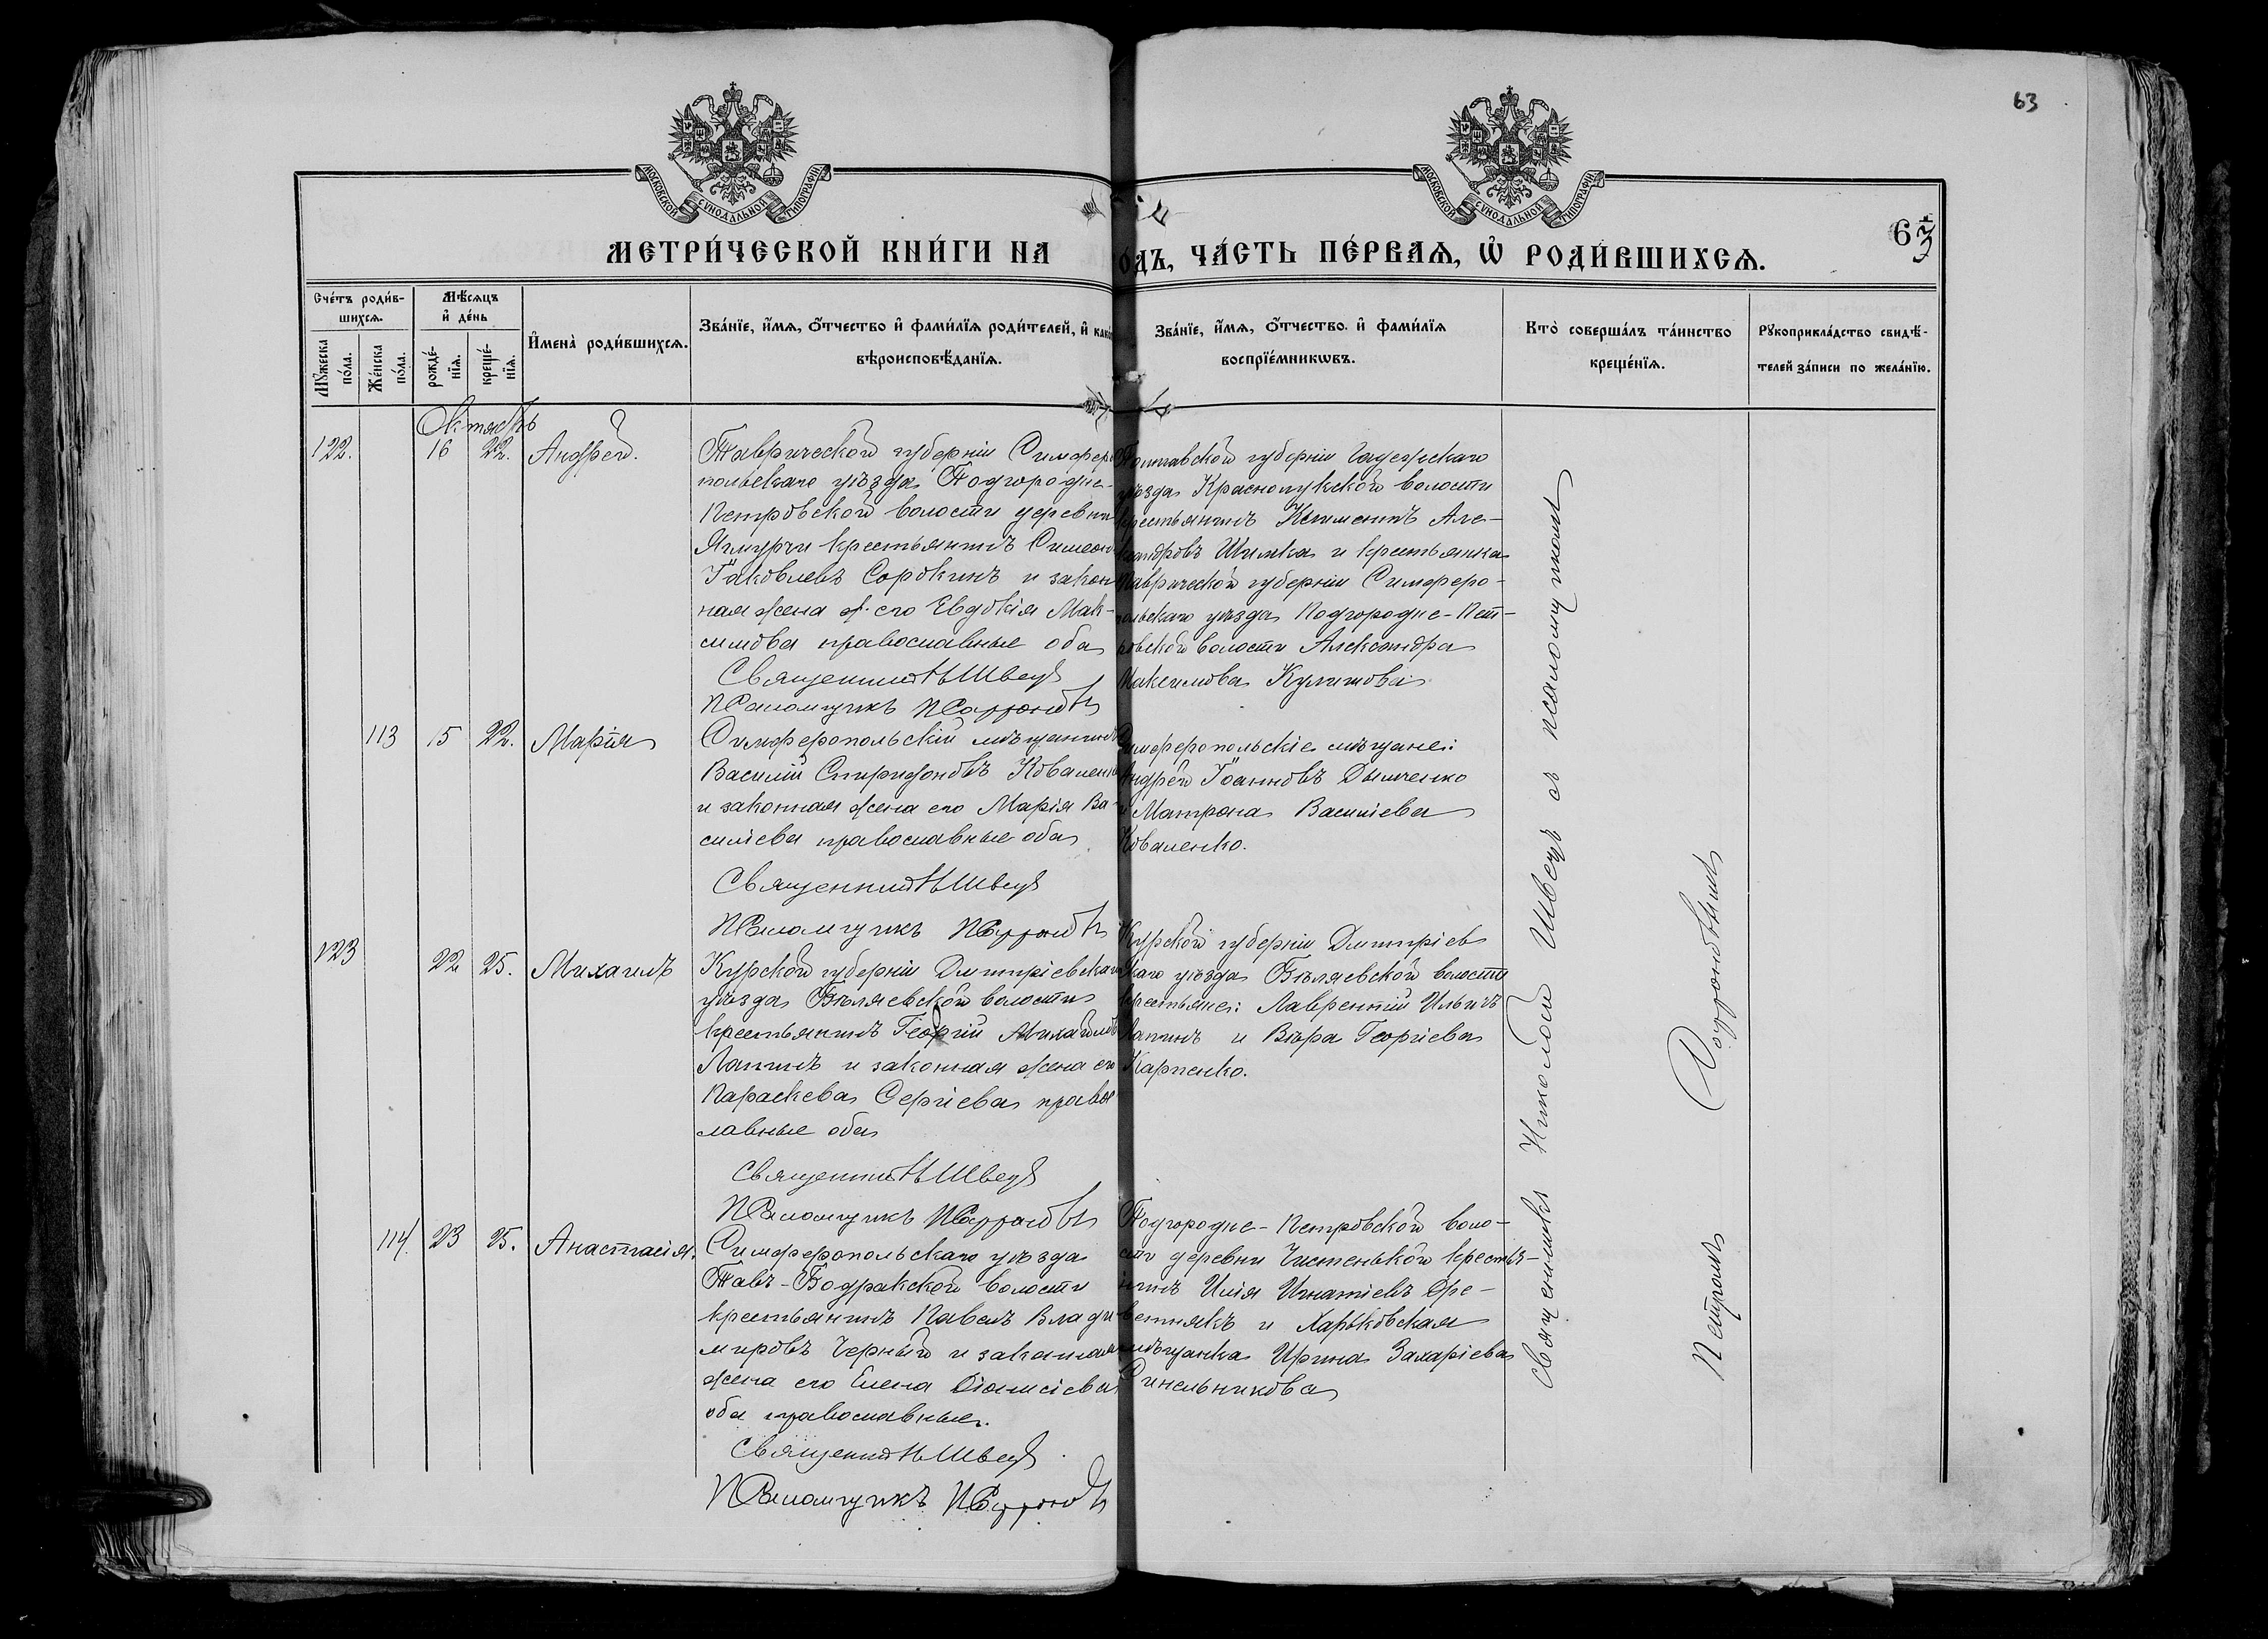 63
МОСКОВСКОЙ СѴНОДАЛЬНОЙ ТИПОГРАФІИ
МОСКОВСКОЙ СѴНОДАЛЬНОЙ ТИПОГРАФІИ
63
МЕТРИ́ЧЕСКОЙ КНИ́ГИ НА
ОДЪ, ЧА́СТЬ ПЕ́РВАѦ, Ѡ҆ РОДИ́ВШИХСѦ.
Сче́тъ роди́в-
шихсѧ.
Мѣ́сѧцъ
и҆ де́нь
Мꙋ́жеска
по́ла.
Же́нска
по́ла.
рожде́-
нїѧ.
креще́-
нїѧ.
И҆мена̀ роди́вшихсѧ.
Зва́нїе, и҆́мѧ, ѻ҆́тчество и҆ фами́лїѧ роди́телей, и҆ како
вѣроисповѣ́данїѧ.
Зва́нїе, и҆́мѧ, ѻ҆́тчество и҆ фами́лїѧ
воспрїе́мникѡвъ.
Кто̀ соверша́лъ та́инство
креще́нїѧ.
Рꙋкоприкла́дство свидѣ́-
телей за́писи по жела́нїю.
Октябрь
122.
16
22.
Андрей.
Таврической губерніи Симферо
польскаго уѣзда Подгородне-
Петровской волости деревни
Яшурчи крестьянинъ Симеонъ
Іаковлевъ Сорокинъ и закон
ная жена его Евдокія Мак-
симова православные оба
Священникъ Н Швецъ
Псаломщикъ
Полтавской губерніи Гадячскаго
уѣзда Краснолукской волости
крестьянинъ Климентъ Але-
ксандровъ Шимка и крестьянка
Таврической губерніи Симферо-
польскаго уѣзда Подгородне-Пет-
ровской волости Александра
Максимова Кулишова
113
15
22.
Марія
Симферопольскій мѣщанинъ
Василій Спиридоновъ Коваленко
и законная жена его Марія Ва-
силіева православные оба
Священникъ Н Швецъ
Псаломщикъ
Симферопольскіе мѣщане:
Андрей Іоанновъ Дымченко
и Матрона Василіева
Коваленко.
123
22
25.
Михаилъ
Курской губерніи Дмитріевскаго
уѣзда Бѣляевской волости
крестьянинъ Георгій Михайловъ
Лапинъ и законная жена его
Параскева Сергіева правос
лавные оба
Священникъ Н Швецъ
Псаломщикъ
Курской губерніи Дмитріев
скаго уѣзда Бѣляевской волости
крестьяне: Лаврентій Ильинъ
Лапинъ и Вѣра Георгіева
Карпенко.
114.
23
25.
Анастасія.
Симферопольскаго уѣзда
Тавъ-Бодракской волости
крестьянинъ Павелъ Влади
мировъ Черный и законная
жена его Елена Діонисіева
оба православные.
Священникъ Н Швецъ
Псаломщикъ
Подгородне-Петровской воло-
сти деревни Чистенькой крестья-
нинъ Илія Игнатіевъ Дре-
ветнякъ и Харьковская
мѣщанка Ирина Захаріева
Синельникова
Священникъ Николай Швецъ съ псаломщикомъ
Петромъ